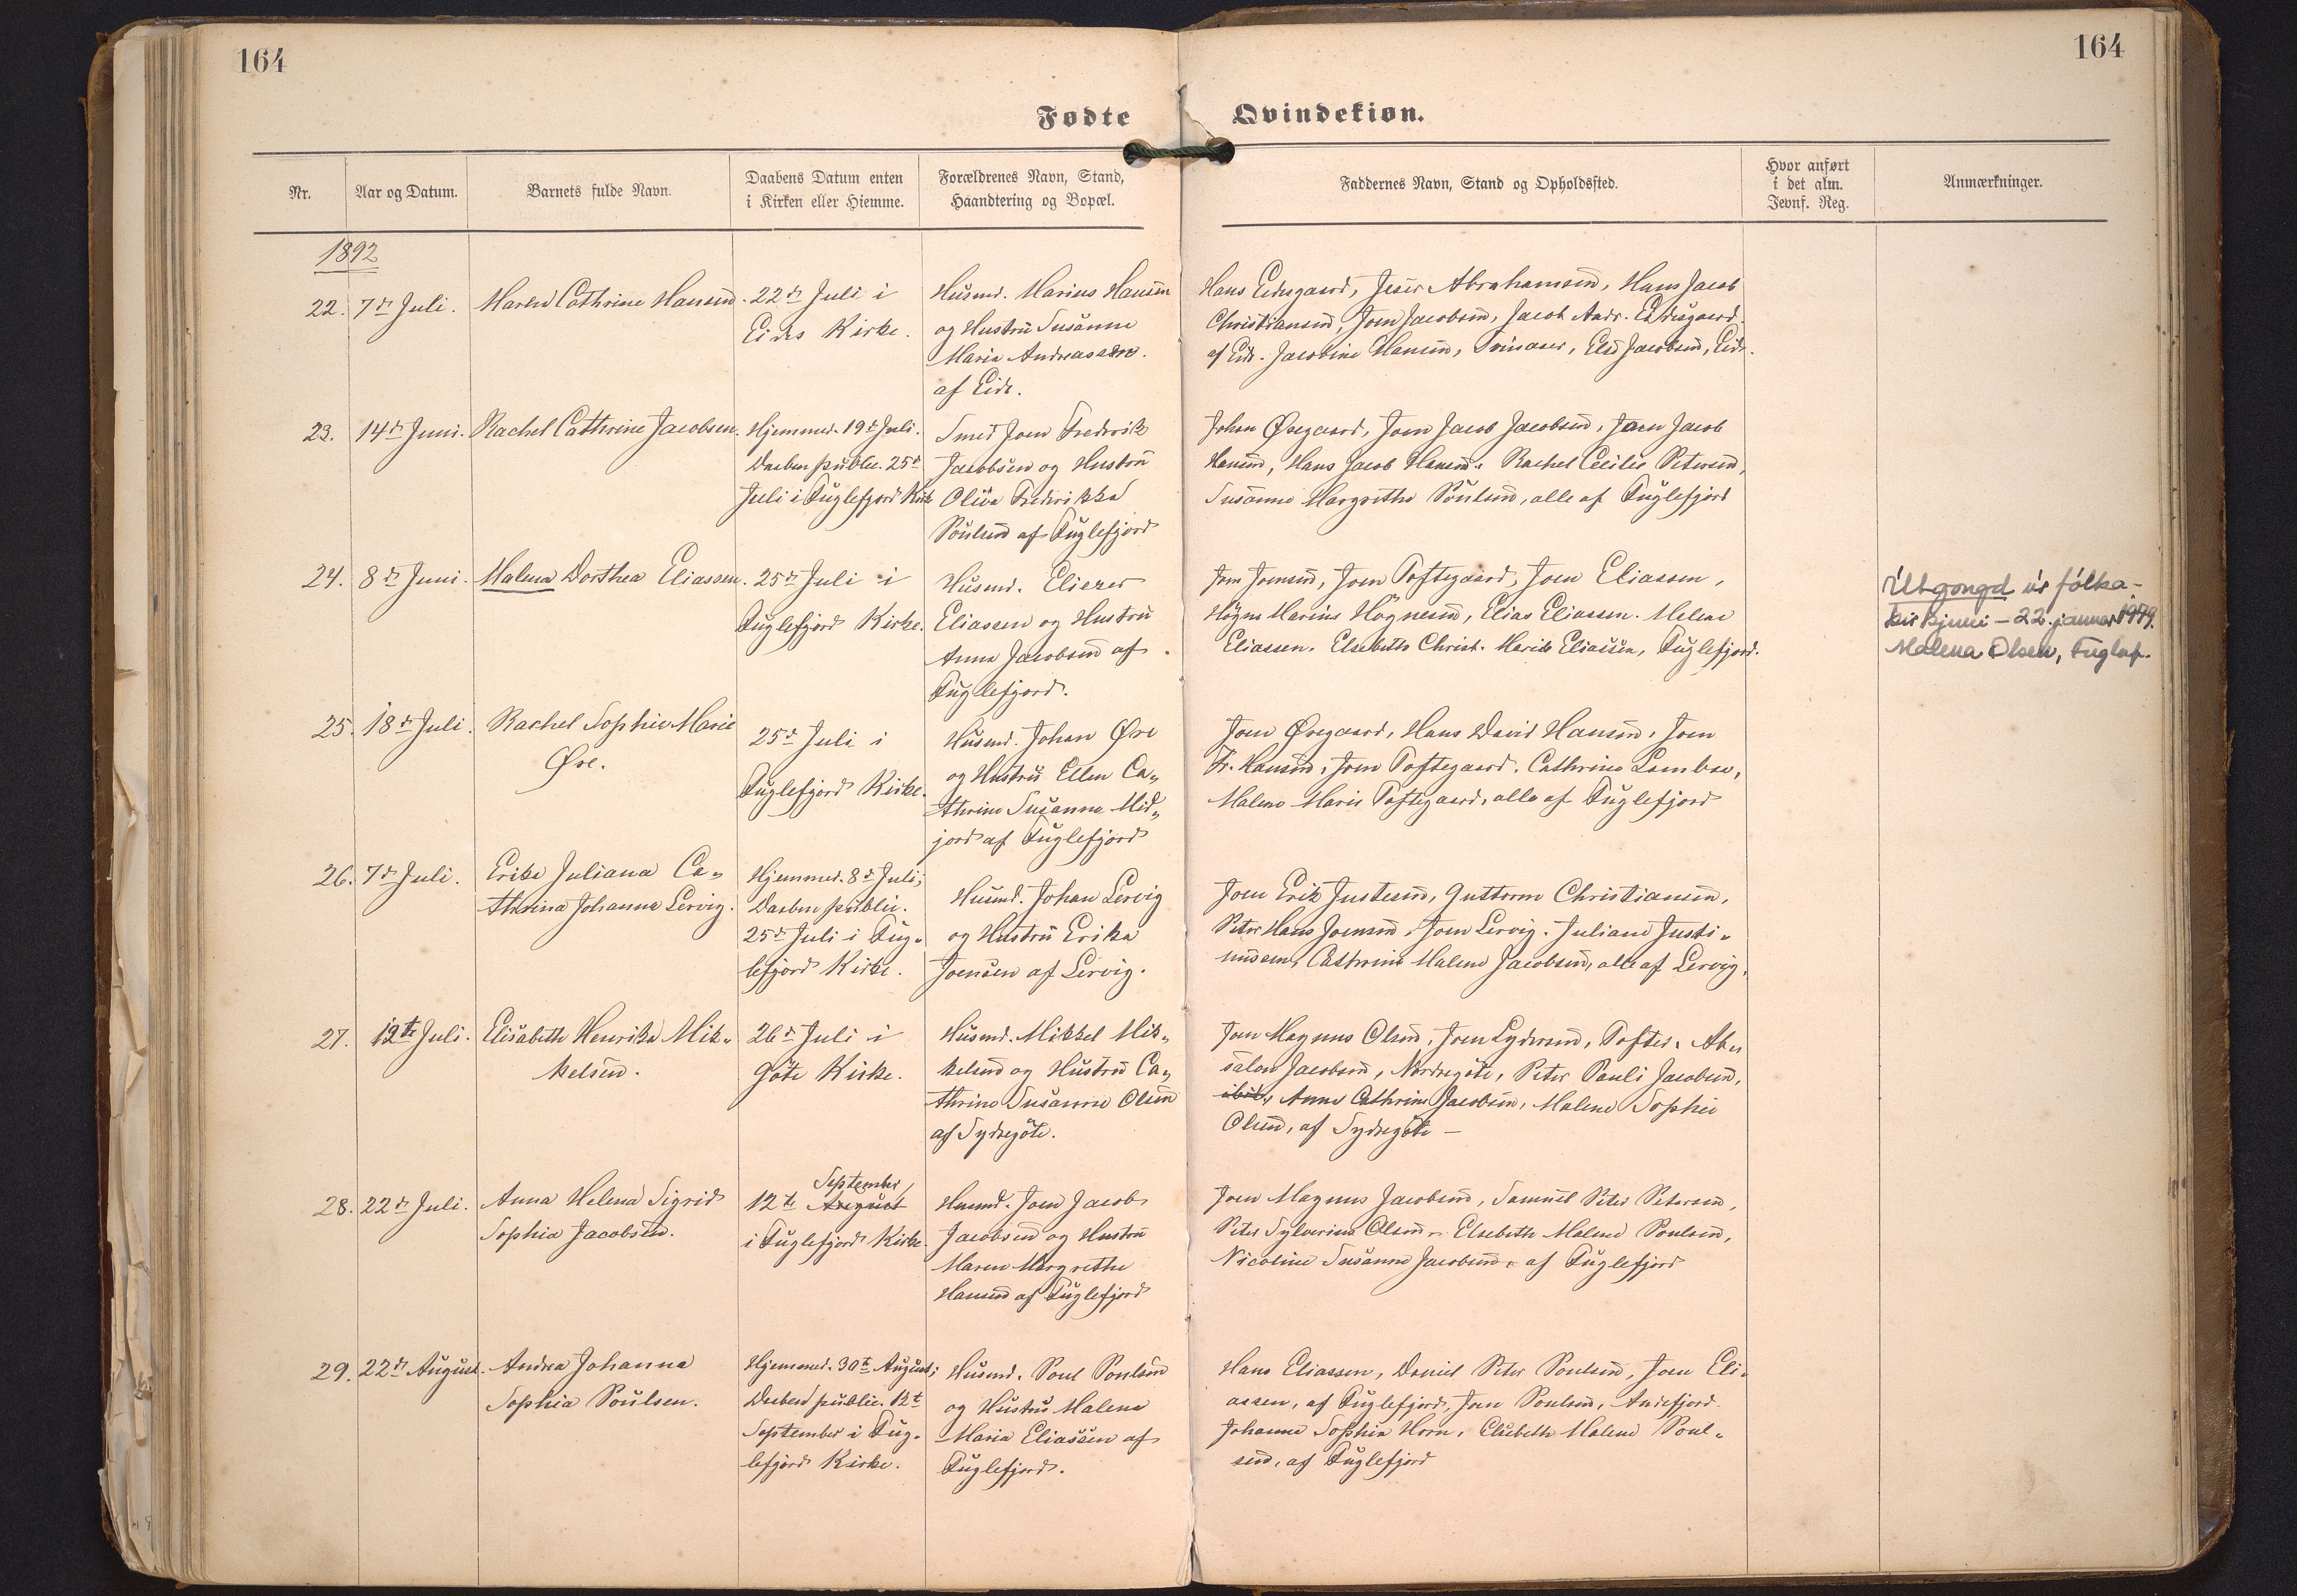 164
164
Fødte Qvindekiøn.
Nr.
Aar og Datum.
Barnets fulde Navn.
Daabens Datum enten
i Kirken eller Hiemme.
Forældrenes Navn, Stand,
Haandtering og Bopæl.
Faddernes Navn, Stand og Opholdssted.
Hvor anført
i det alm.
Jevnf. Reg.
Anmærkninger.
1892
22. 7de Juli.
Maren Cathrine Hansen.
22de Juli i
Eides Kirke.
Husmd. Marius Hansen
og Hustru Susanne
Maria Andreasen
af Eide.
Hans Eidesgaard, Abrahamsen, Hans Jacob
Christiansen, Joen Jacobsen, Jacob Andr. Eidesgaard
af Eide. Jacobine Hansen, Else Jacobsen, Eide.
23. 14de Juni.
Rachel Cathrine Jacobsen.
Hjemmed. 19de Juli.
Daaben public. 25de
Juli i Fuglefjord Kirke
Smed Joen Fredrik
Jacobsen og Hustru
Oliva Fredrikka
Poulsen af Fuglefjord
Johan Øregaard, Joen Jacob Jacobsen, Joen Jacob
Hansen, Hans Jacob Hansen. Rachel Cecilie Petersen,
Susanne Margrethe Poulsen, alle af Fuglefjord
24. 8de Juni.
Malena Dorthea Eliassen.
25de Juli i
Fuglefjord Kirke.
Husmd. Eliezer
Eliassen og Hustru
Anna Jacobsen af
Fuglefjord.
Joen Joensen, Joen Toftegaard, Joen Eliassen,
Høgne Marius Høgnesen, Elias Eliassen. Malene
Eliassen. Elsebeth Christ. Marie Eliassen, Fuglefjord.
Útgongd úr fólka-
kirkjuni – 22. januar 1979.
Malena Olsen, Fuglaf.
25. 18de Juli.
Rachel Sophie Marie
Øre.
25de Juli i
Fuglefjord Kirke.
Husmd. Johan Øre
og Hustru Ellen Ca-
thrine Susanna Mid-
jord af Fuglefjord
Joen Øregaard, Hans David Hansen, Joen
Fr. Hansen, Joen Toftegaard. Cathrine Lambae,
Malene Marie Toftegaard, alle af Fuglefjord
26. 7de Juli.
Erika Juliana Ca-
thrina Johanna Lervig.
Hjemmed. 8de Juli;
Daaben public.
25de Juli i Fug-
lefjord Kirke.
Husmd. Johan Lervig
og Hustru Erika
Joensen af Lervig.
Joen Erik Justesen, Guttorm Christiansen,
Peter Hans Joensen, Joen Lervig. Juliane Justi-
nussen, Cathrine Malene Jacobsen, alle af Lervig.
27. 12te Juli.
Elisabeth Henrika Mik-
kelsen.
26de Juli i
Gøte Kirke.
Husmd. Mikkel Mik-
kelsen og Hustru Ca-
thrine Susanne Olsen
af Sydregøte.
Joen Magnus Olsen, Joen Lydersen, Tofter. Ab-
salon Jacobsen, Nordregøte, Peter Pauli Jacobsen,
ibid., Anne Cathrine Jacobsen, Malene Sophie
Olsen, af Sydregøte –
28. 22de Juli.
Anna Helena Sigrid
Sophia Jacobsen.
September
12te August
i Fuglefjord Kirke.
Husmd. Joen Jacob
Jacobsen og Hustru
Maren Margrethe
Hansen af Fuglefjord
Joen Magnus Jacobsen, Samuel Peter Petersen,
Peter Sylverius Olsen. Elsebeth Malene Poulsen,
Nicoline Susanne Jacobsen, af Fuglefjord
29. 22de August.
Andrea Johanna
Sophia Poulsen.
Hjemmed. 30te August;
Daaben public. 12te
September i Fug-
lefjord Kirke.
Husmd. Poul Poulsen
og Hustru Malena
Maria Eliassen af
Fuglefjord.
Hans Eliassen, Daniel Peter Poulsen, Joen Eli-
assen, af Fuglefjord, Joen Poulsen, Andefjord.
Johanne Sophia Horn, Elsebeth Malene Poul-
sen, af Fuglefjord